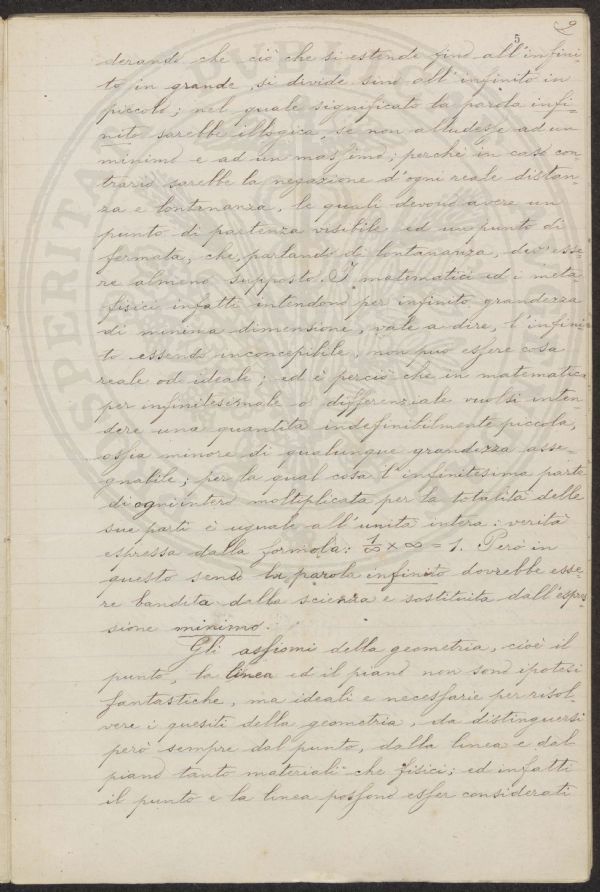 5
9
derando che ciò che si estende fino all'infini-
to in grande, si divide sino all'infinito in
piccolo; nel quale significato la parola infi-
nito sarebbe illogica, se non alludesse ad un
minimo e ad un massimo; perchè in caso con-
trario sarebbe la negazione d'ogni reale distan-
za e lontananza, le quali devono avere un
punto di partenza visibile ed un punto di
fermata, che, parlando di lontananza, dev'esse-
re almeno supposto. I matematici ed i meta-
fisici infatti intendono per infinito grandezza
di minima dimensione, vale a dire, l'infini-
to essendo inconcepibile, non può essere cosa
reale od ideale; ed è perciò che in matematica
per infinitesimale o differenziale vuolsi inten-
dere una quantità indefinibilmente piccola,
ossia minore di qualunque grandezza asse-
gnabile; per la qual cosa l'infinitesima parte
di ogni intero moltiplicata per la totalità delle
sue parti è uguale all'unità intera: verità
espressa dalla formola: 1/∞ × ∞ = 1. Però in
questo senso la parola infinito dovrebbe esse-
re bandita dalla scienza e sostituita dall'espres-
sione minimo.
Gli assiomi della geometria, cioè il
punto, la linea ed il piano non sono ipotesi
fantastiche, ma ideali e necessarie per risol-
vere i quesiti della geometria, da distinguersi
però sempre dal punto, dalla linea e dal
piano tanto materiali che fisici; ed infatti
il punto e la linea possono esser considerati